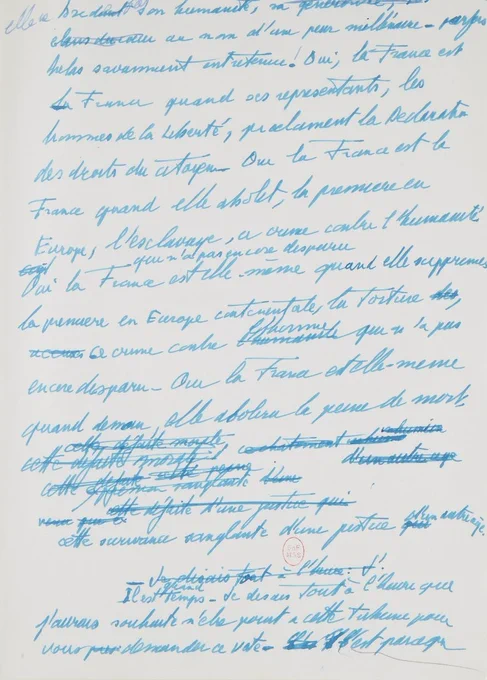 elle a bradant son humanité, sa générosité,
au nom d'une peur millénaire - parfois
hélas savamment entretenue ! Oui, la France est
la France quand ses représentants, les
hommes de la Liberté, proclament la Déclaration
des droits du citoyen - Oui la France est la
France quand elle abolit, la première en
Europe, l'esclavage, ce crime contre l'humanité
qui n'a pas encore disparu
Oui la France est elle-même quand elle supprime
la première en Europe continentale, la torture
l'homme
ce crime contre l'humanité qui n'a pas
encore disparu - Oui la France est elle-même
quand demain elle abolira la peine de mort
cette défaite morale,
cette défaite
d'un autre age
cette
sanglante
cette défaite d'une justice qui
cette survivance sanglante d'une justice qui d'un autre âge.
Je disais tout à l'heure : J'
Il est grand temps - Je disais tout à l'heure que
j'aurais souhaité n'être point à cette Tribune pour
vous demander ce vote - C'est parce qu